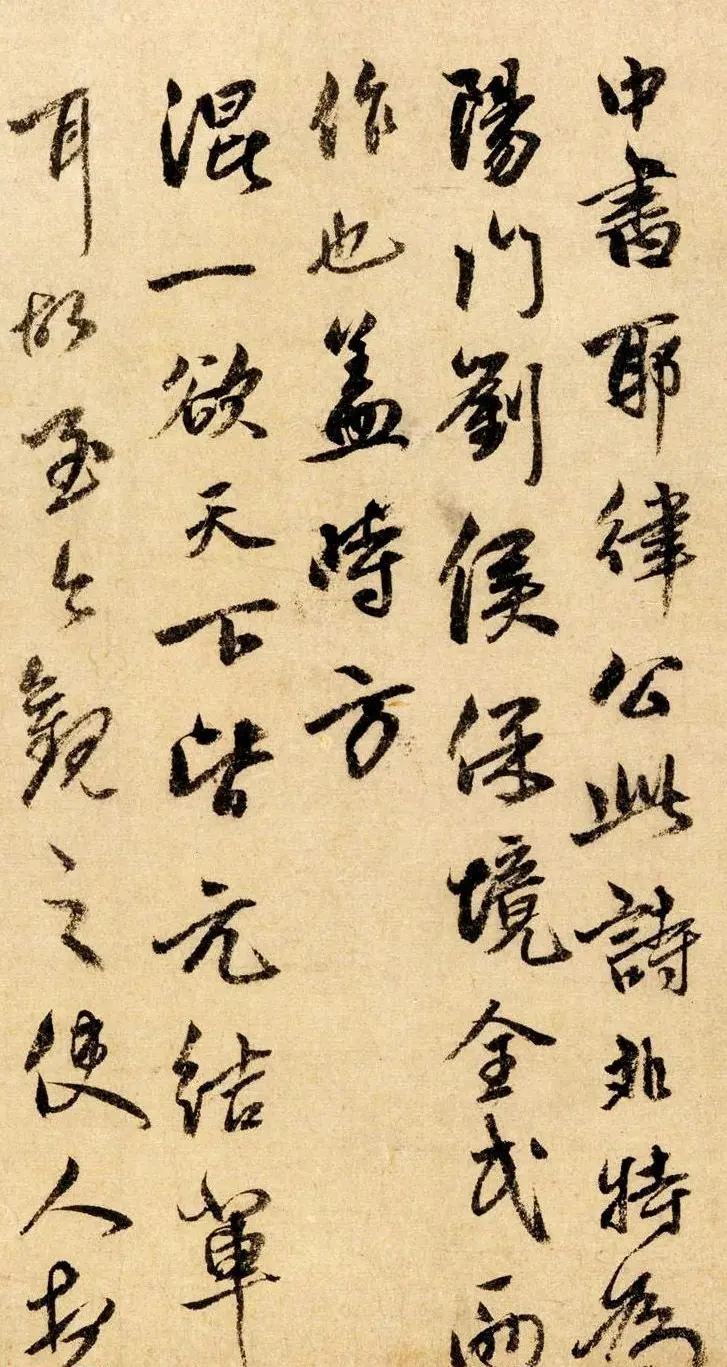 中書耶律公此詩非特為
陽門劉侯保境全民而
作也蓋時方
混一欲天下皆元結輩
耳故至今觀之使人